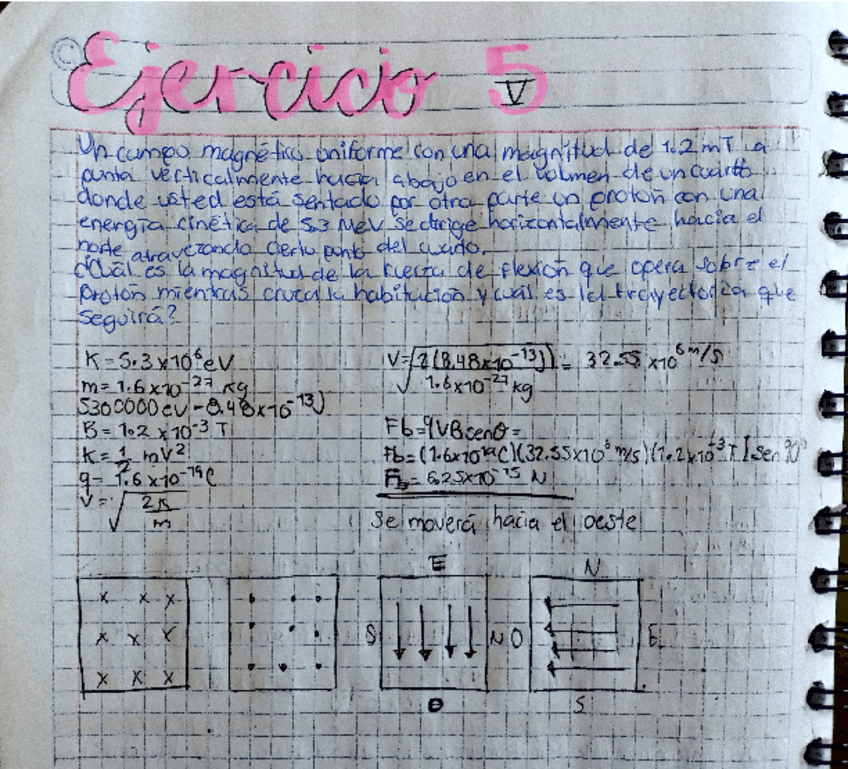 Ejercicio 5
V
Un campo magnético uniforme con una magnitud de 1.2 mT a
punta verticalmente hacia abajo en el volumen de un cuarto
donde usted está sentado por otra parte un protón con una
energía cinética de 5.3 MeV se dirige horizontalmente hacia el
norte atravezando cierto punto del cuarto.
¿Cuál es la magnitud de la fuerza de flexión que opera sobre el
protón mientras cruza la habitación y cuál es la trayectoria que
seguirá?
K = 5.3 x10⁶ eV
m = 1.6 x10⁻²⁷ kg
5300000 eV - 8.48 x10⁻¹³ J
B = 1.2 x10⁻³ T
K = 1/2 mV²
q = 1.6 x10⁻¹⁹ C
V = √(2K/m)
V = √(2(8.48x10⁻¹³J)/1.6x10⁻²⁷kg) = 32.55 x10⁶ m/s
Fb = qVBsenθ =
Fb = (1.6x10⁻¹⁹C)(32.55x10⁶ m/s)(1.2x10⁻³ T) Sen 90°
Fb = 6.25x10⁻¹⁵ N
Se moverá hacia el oeste
E N
x x x
x x x
x x x
S N O E
O S